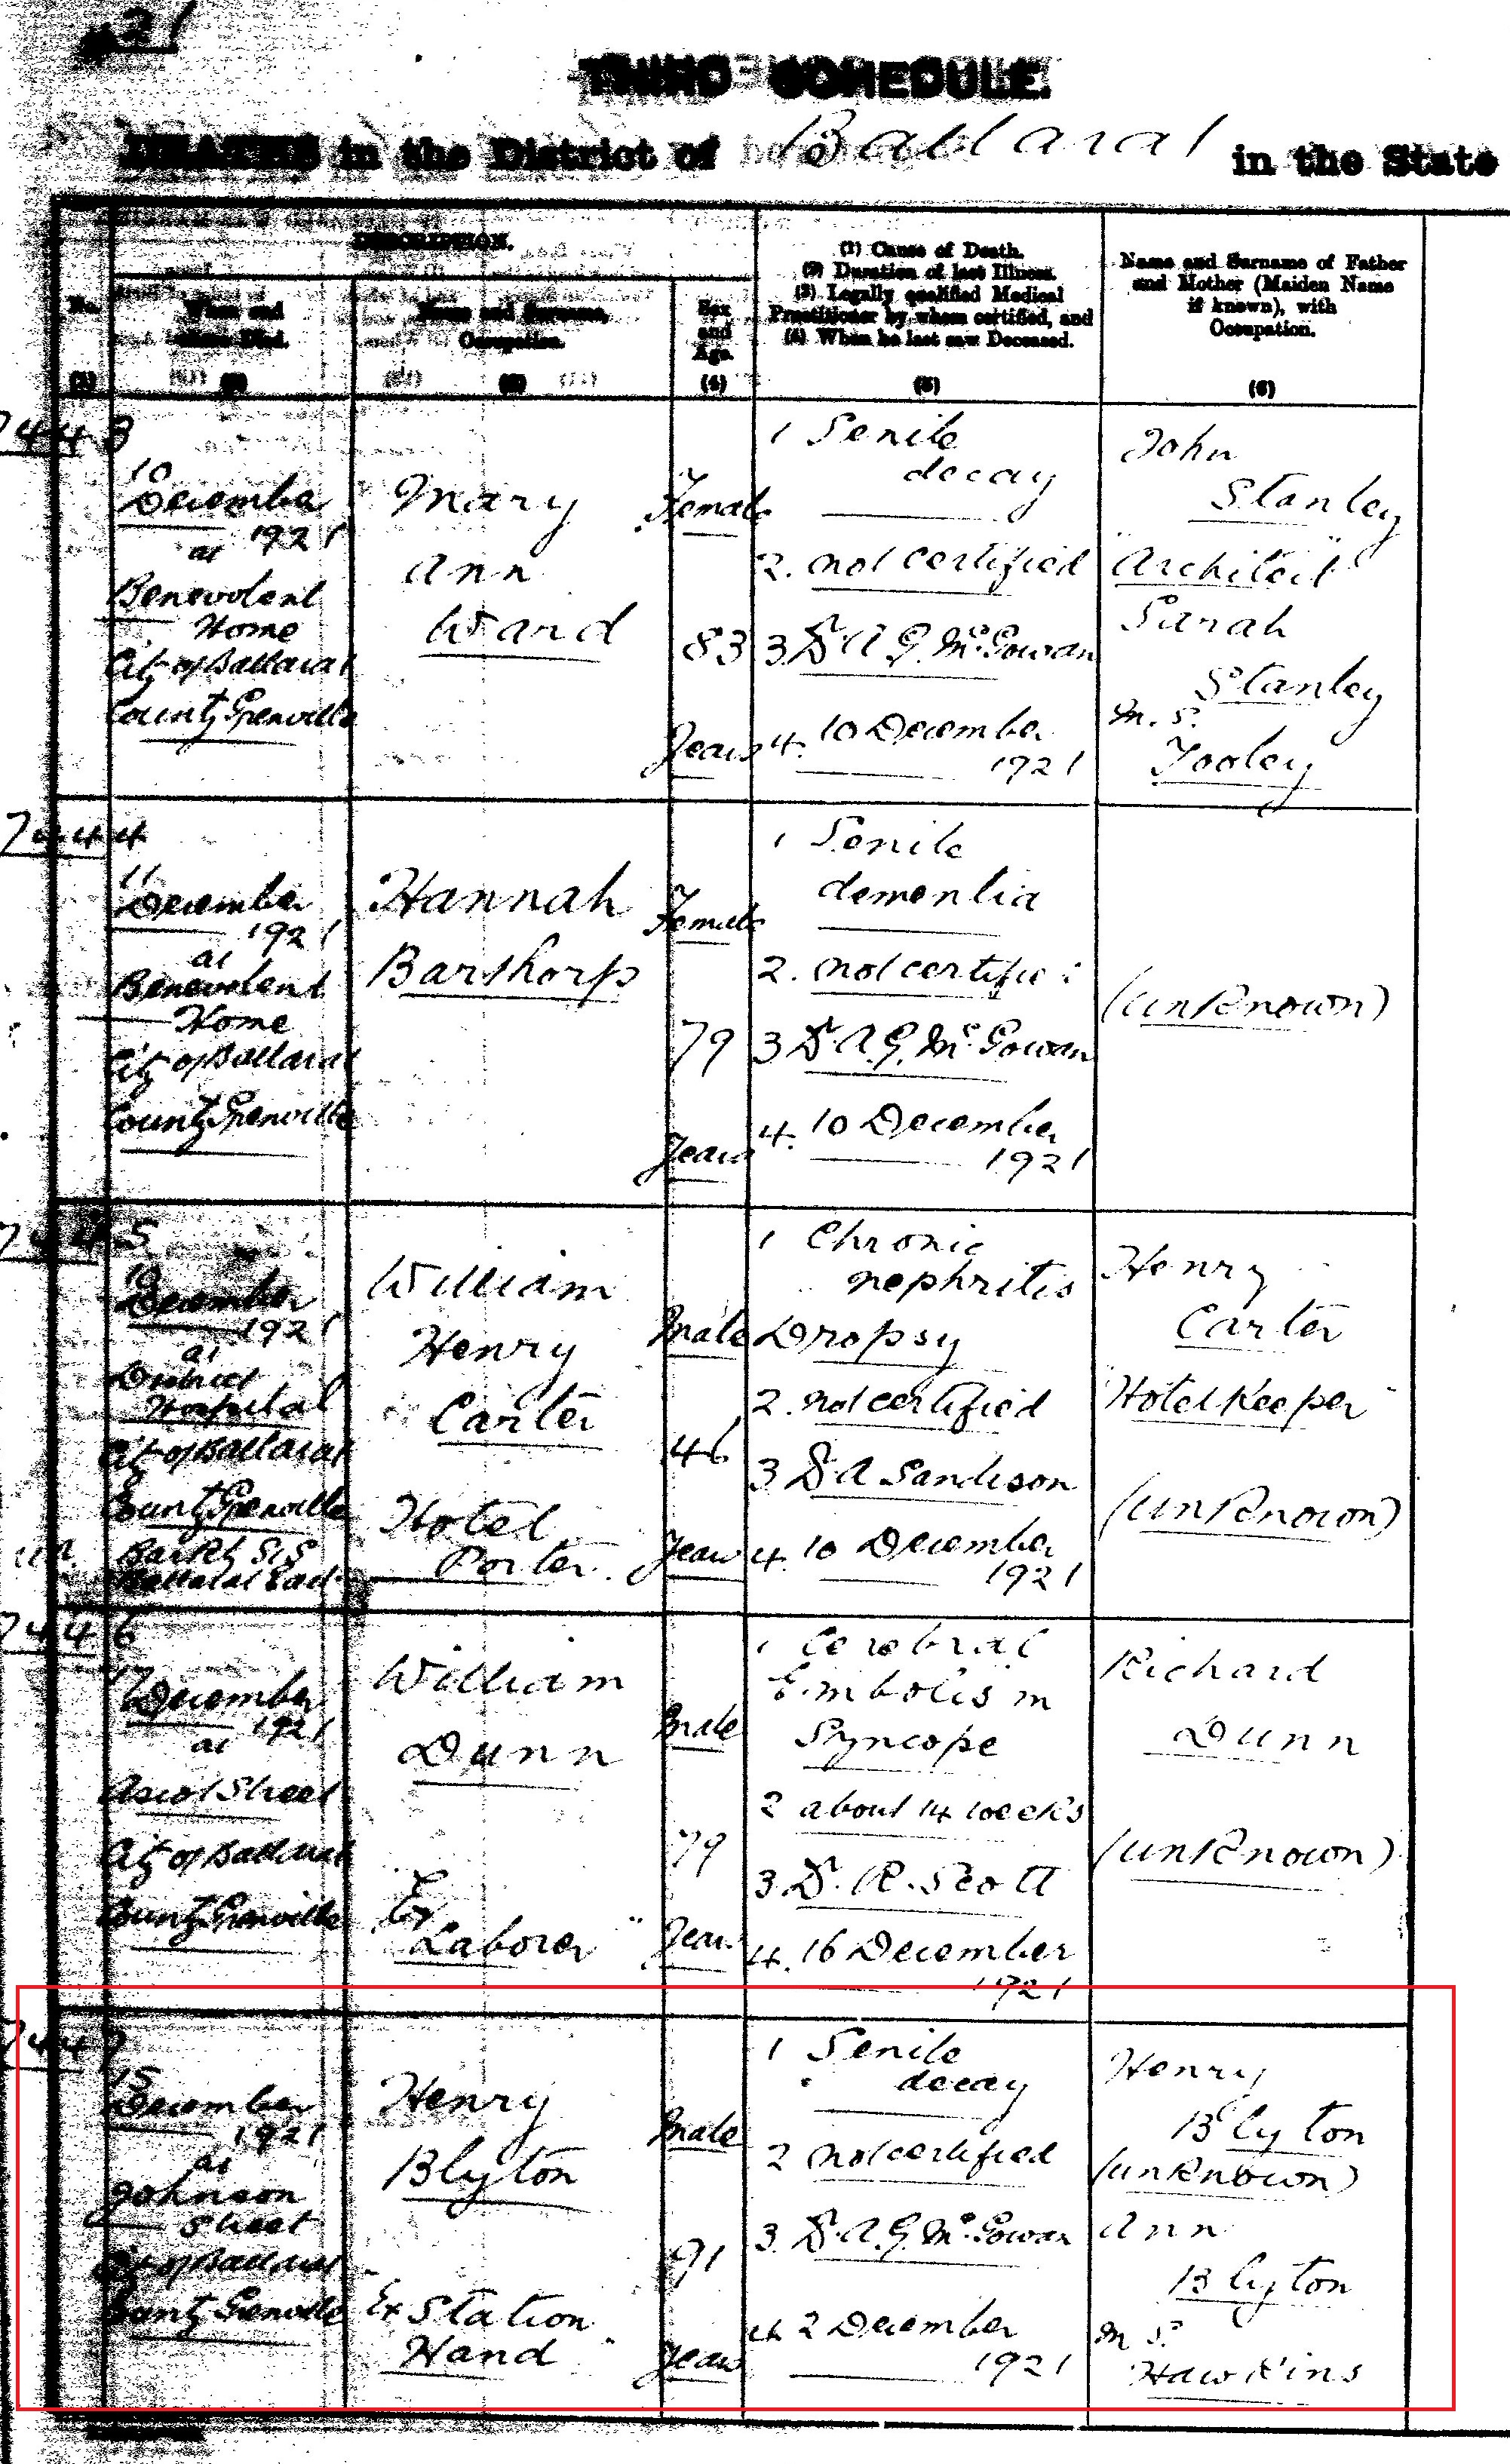 21
THIRD SCHEDULE.
DEATHS in the District of Ballarat in the State
DESCRIPTION.
No.
(1)
When and
where Died.
(2)
Name and Surname,
Occupation.
(3)
Sex
and
Age.
(4)
(1) Cause of Death.
(2) Duration of last Illness.
(3) Legally qualified Medical
Practitioner by whom certified, and
(4) When he last saw Deceased.
(5)
Name and Surname of Father
and Mother (Maiden Name
if known), with
Occupation.
(6)
7443
10
December
1921
at
Benevolent
Home
City of Ballarat
County Grenville
Mary
Ann
Ward
Female
83
Years
1 Senile
decay
2. not certified
3 Dr A. G. McGowan
4. 10 December
1921
John
Stanley
"Architect"
Sarah
Stanley
m. s.
Tooley
7444
11
December
1921
at
Benevolent
Home
City of Ballarat
County Grenville
Hannah
Barshorp
Female
79
Years
1 Senile
dementia
2. not certified
3 Dr A. G. McGowan
4. 10 December
1921
(unknown)
7445
10
December
1921
at
District
Hospital
City of Ballarat
County Grenville
Barkly St
Ballarat East
William
Henry
Carter
Hotel
Porter
Male
46
Years
1 Chronic
nephritis
Dropsy
2. not certified
3 Dr A Sandison
4. 10 December
1921
Henry
Carter
Hotel Keeper
(unknown)
7446
17
December
1921
at
Ascot Street
City of Ballarat
County Grenville
William
Dunn
Ex
Laborer
Male
79
Years
1 Cerebral
Embolism
Syncope
2 about 14 weeks
3. Dr. R. Scott
4. 16 December
1921
Richard
Dunn
(unknown)
7447
15
December
1921
at
Johnson
Street
City of Ballarat
County Grenville
Henry
Blyton
Ex Station
Hand
Male
91
Years
1 Senile
decay
2 not certified
3. Dr. A. G. McGowan
4. 2 December
1921
Henry
Blyton
(unknown)
Ann
Blyton
m s.
Hawkins